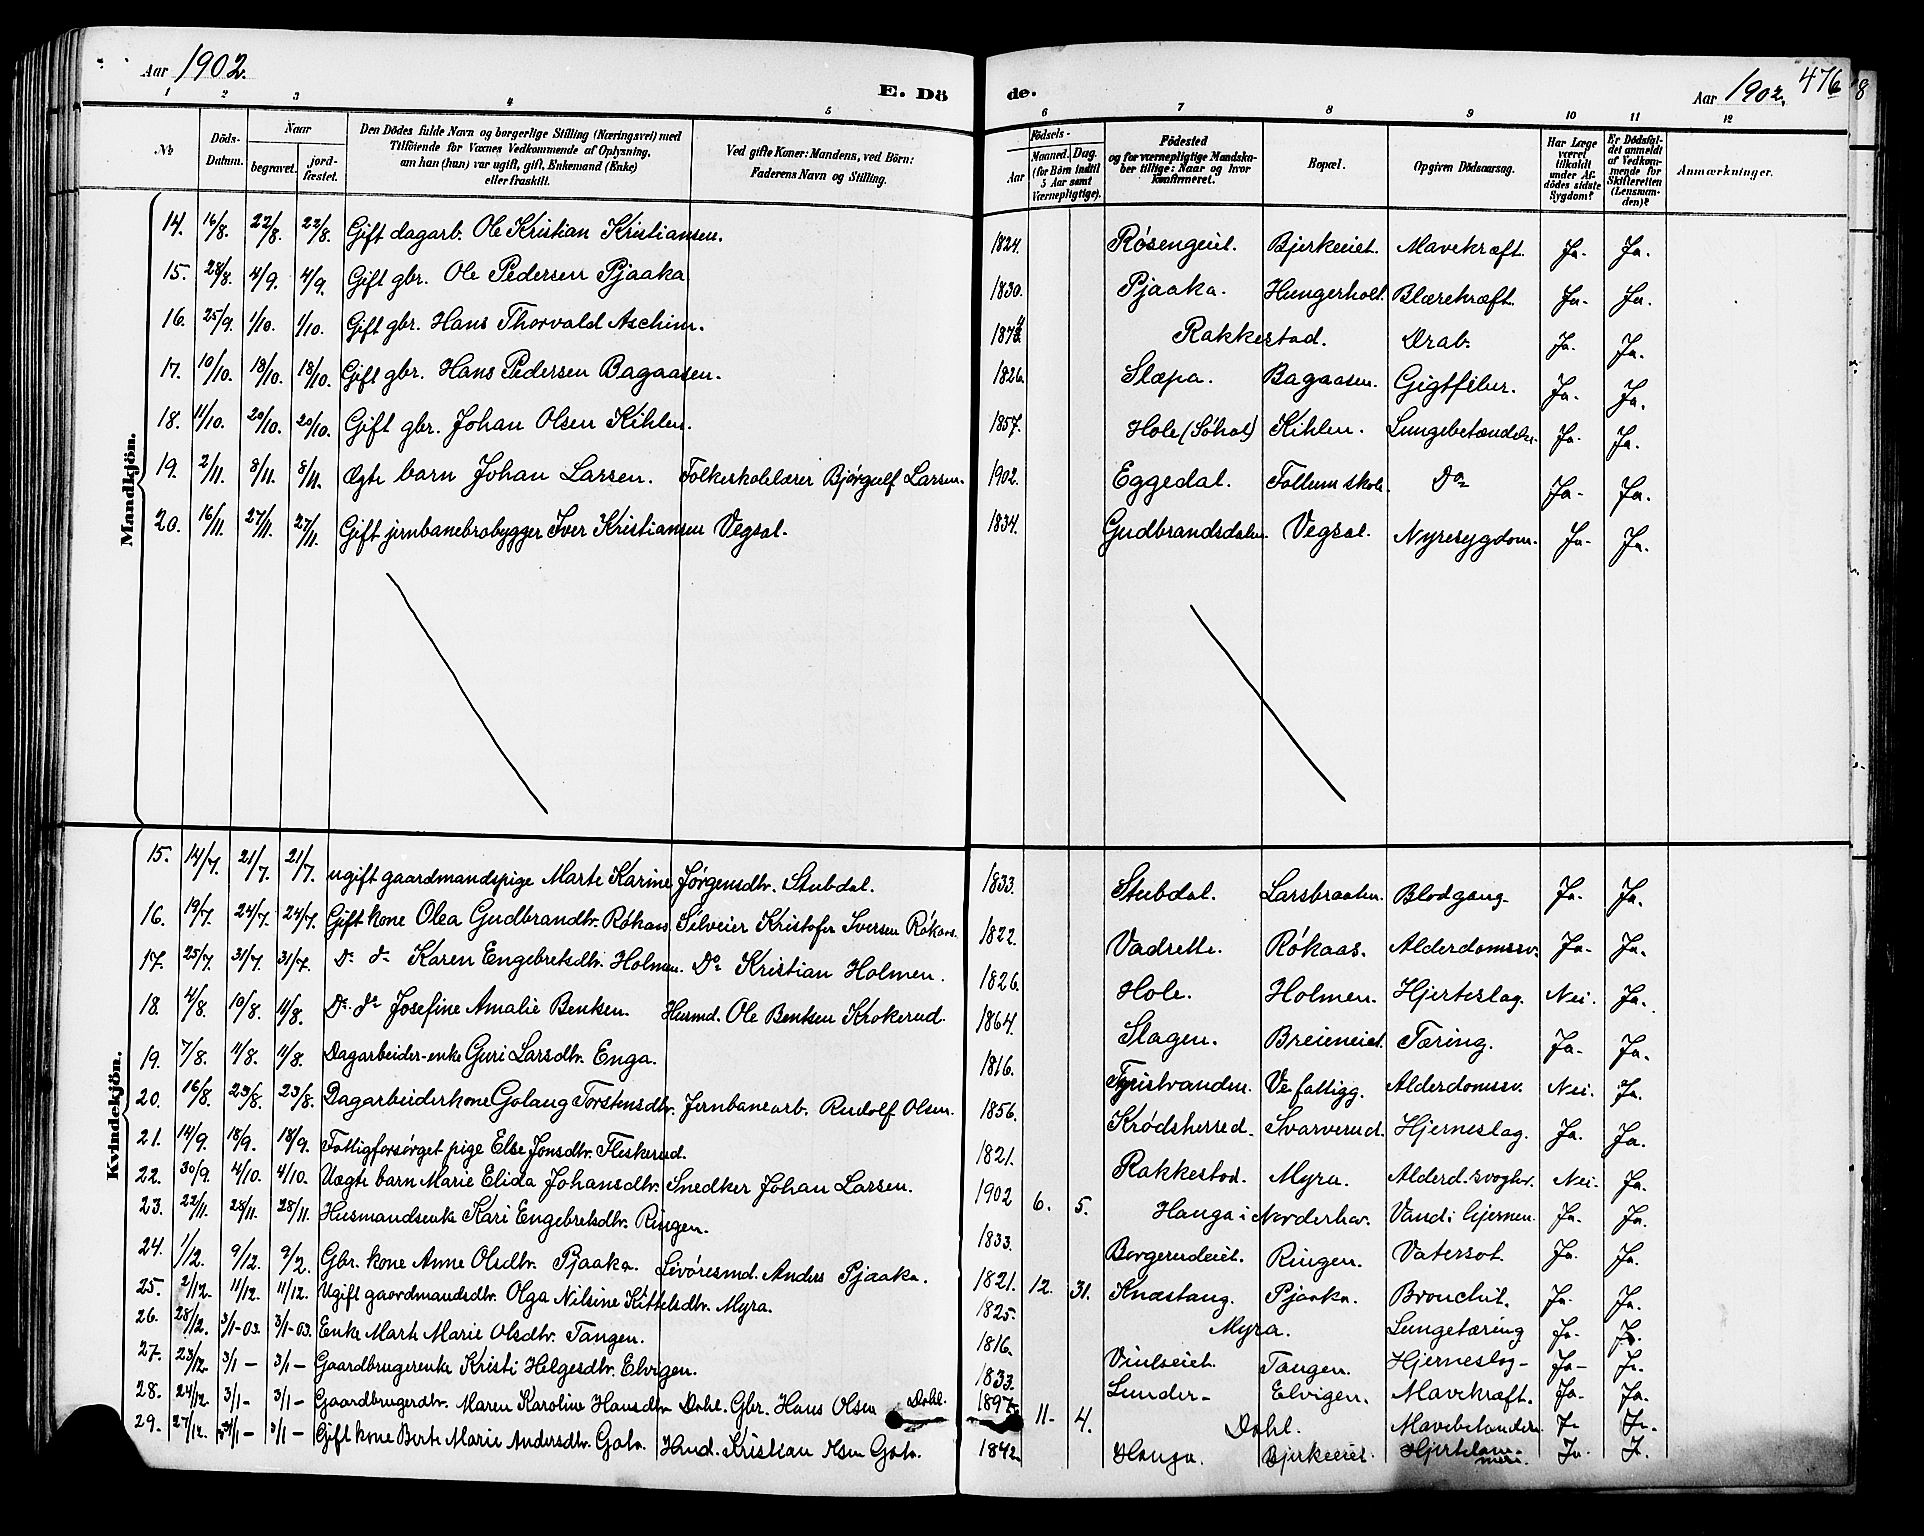 Aar 1902.
E. Dö
de.
Aar 1902. 476
1 2 3 4 5 6 7 8 9 10 11 12
№ Döds-Datum. Naar begravet. jordfæstet. Den Dödes fulde Navn og borgerlige Stilling (Næringsvei) med Tilföiende for Voxnes Vedkommende af Oplysning, om han (hun) var ugift, gift, Enkemand (Enke) eller fraskilt. Ved gifte Koner: Mandens, ved Börn: Faderens Navn og Stilling.
Aar Födsels- Maaned. Dag. (for Börn indtil 5 Aar samt Værnepligtige). Födested og for værnepligtige Mandskaber tillige: Naar og hvor Konfirmeret. Bopæl. Opgiven Dödsaarsag. Har Læge været tilkaldt under Afdödes sidste Sygdom? Er Dödsfaldet anmeldt af Vedkommende for Skifteretten (Lensmanden)? Anmærkninger.
Mandkjön.
14. 16/8. 22/8. 22/8. Gift dagarb. Ole Kristian Kristiansen. 1824. Røsengeiet. Bjerkeeiet. Mavekræft. Ja. Ja.
15. 28/8. 4/9. 4/9. Gift gbr. Ole Pedersen Pjaaka 1830. Pjaaka. Hungerholt. Blærekræft. Ja. Ja.
16. 25/9. 1/10. 1/10. Gift gbr. Hans Thorvald Aschim. Rakkestad. Drab. Ja. Ja.
17. 10/10. 18/10. 18/10. Gift gbr. Hans Pedersen Bagaasen. 1826. Slæpa. Bagaasen. Gigtfeber. Ja. Ja.
18. 11/10. 20/10. 20/10. Gift gbr. Johan Olsen Kihlen. 1857. Hole (Søhol) Kihlen. Lungebetændelse. Ja. Ja.
19. 2/11. 8/11. 8/11. Ægte barn Johan Larsen. Folkeskolelærer Bjørgulf Larsen. 1902. Eggedal. Follum skole. Do Ja. Ja.
20. 16/11. 27/11. 27/11. Gift jernbanebrobygger Iver Kristiansen Vegsal. 1834. Gudbrandsdalen. Vegsal. Nyresygdom. Ja. Ja.
Kvindekjön.
15. 14/7. 21/7. 21/7. ugift gaardmandspige Marte Karine Jørgensdtr. Stubdal. 1833. Stubdal. Larsbraaten. Blodgang. Ja. Ja.
16. 19/7. 24/7. 24/7. Gift kone Olea Gudbrandtr. Røkaas Selveier Kristofer Iversen Røkaas. 1822. Vadsette. Røkaas. Alderdomssv. Ja. Ja.
17. 25/7. 31/7. 31/7. Do do Karen Engebretsdtr. Holmen. Do Kristian Holmen. 1826. Hole. Holmen. Hjerteslag. Nei. Ja.
18. 4/8. 10/8. 11/8. Do. do Josefine Amalie Bentsen. Husmd. Ole Bentsen Krokerud. 1864. Slagen. Breieneiet. Tæring. Ja. Ja.
19. 7/8. 11/8. 11/8. Dagarbeider-enke Guri Larsdtr. Enga. 1816. Tyristranden. Ve fattigg. Alderdomssv. Nei. Ja.
20. 16/8. 23/8. 23/8. Dagarbeiderkone Golaug Torstensdtr. Jernbanearb. Rudolf Olsen. 1856. Krødsherred. Svarverud. Hjerneslag. Ja. Ja.
21. 14/9. 18/9. 18/9. Fattigforsørget pige Else Jonsdtr. Fleskerud. 1821. Rakkestad. Myra. Alderd.svaghed. Nei. Ja.
22. 30/9. 4/10. 4/10. Uægte barn Marie Elida Johansdtr. Snedker Johan Larsen. 1902 6. 5. Hanga i Norderhov. Vand i hjernen. Ja. Ja.
23. 22/11. 28/11. 28/11. Husmandsenke Kari Engebretsdtr. Ringen. 1833. Borgerudeiet. Ringen. Vatersot. Ja. Ja.
24. 1/12. 9/12. 9/12. Gbr. kone Anne Olsdtr. Pjaaka. Livøresmd. Anders Pjaaka. 1821. 12. 31. Knæstang. Pjaaka. Bronchit. Ja. Ja.
25. 2/12. 11/12. 11/12. Ugift gaardmandsdtr. Olga Nilsine Kittelsdtr. Myra. 1825. Myra. Lungetæring Ja. Ja.
26. 28/12. 3/1-03. 3/1-03. Enke Marte Marie Olsdtr. Tangen. 1816. Tangen. Hjerneslag- Ja- Ja.
27. 23/12. 3/1- 3/1- Gaardbrugerenke Kristi Helgesdtr. Elvigen. 1833. Lunder- Elvigen. Mavekræft. Ja. Ja.
28. 24/12. 3/1- 3/1- Gaardbrugerdtr. Maren Karoline Hansdtr Dahl. Gbr. Hans Olsen Dahl. 1897. 11- 4. Dahl. Mavebetændelse Ja. Ja.
29. 27/12. 3/1- 3/1- Gift kone Berte Marie Andersdtr. Kristian Olsen 1842. Hanga. Bjerkeeiet. Ja. Ja.